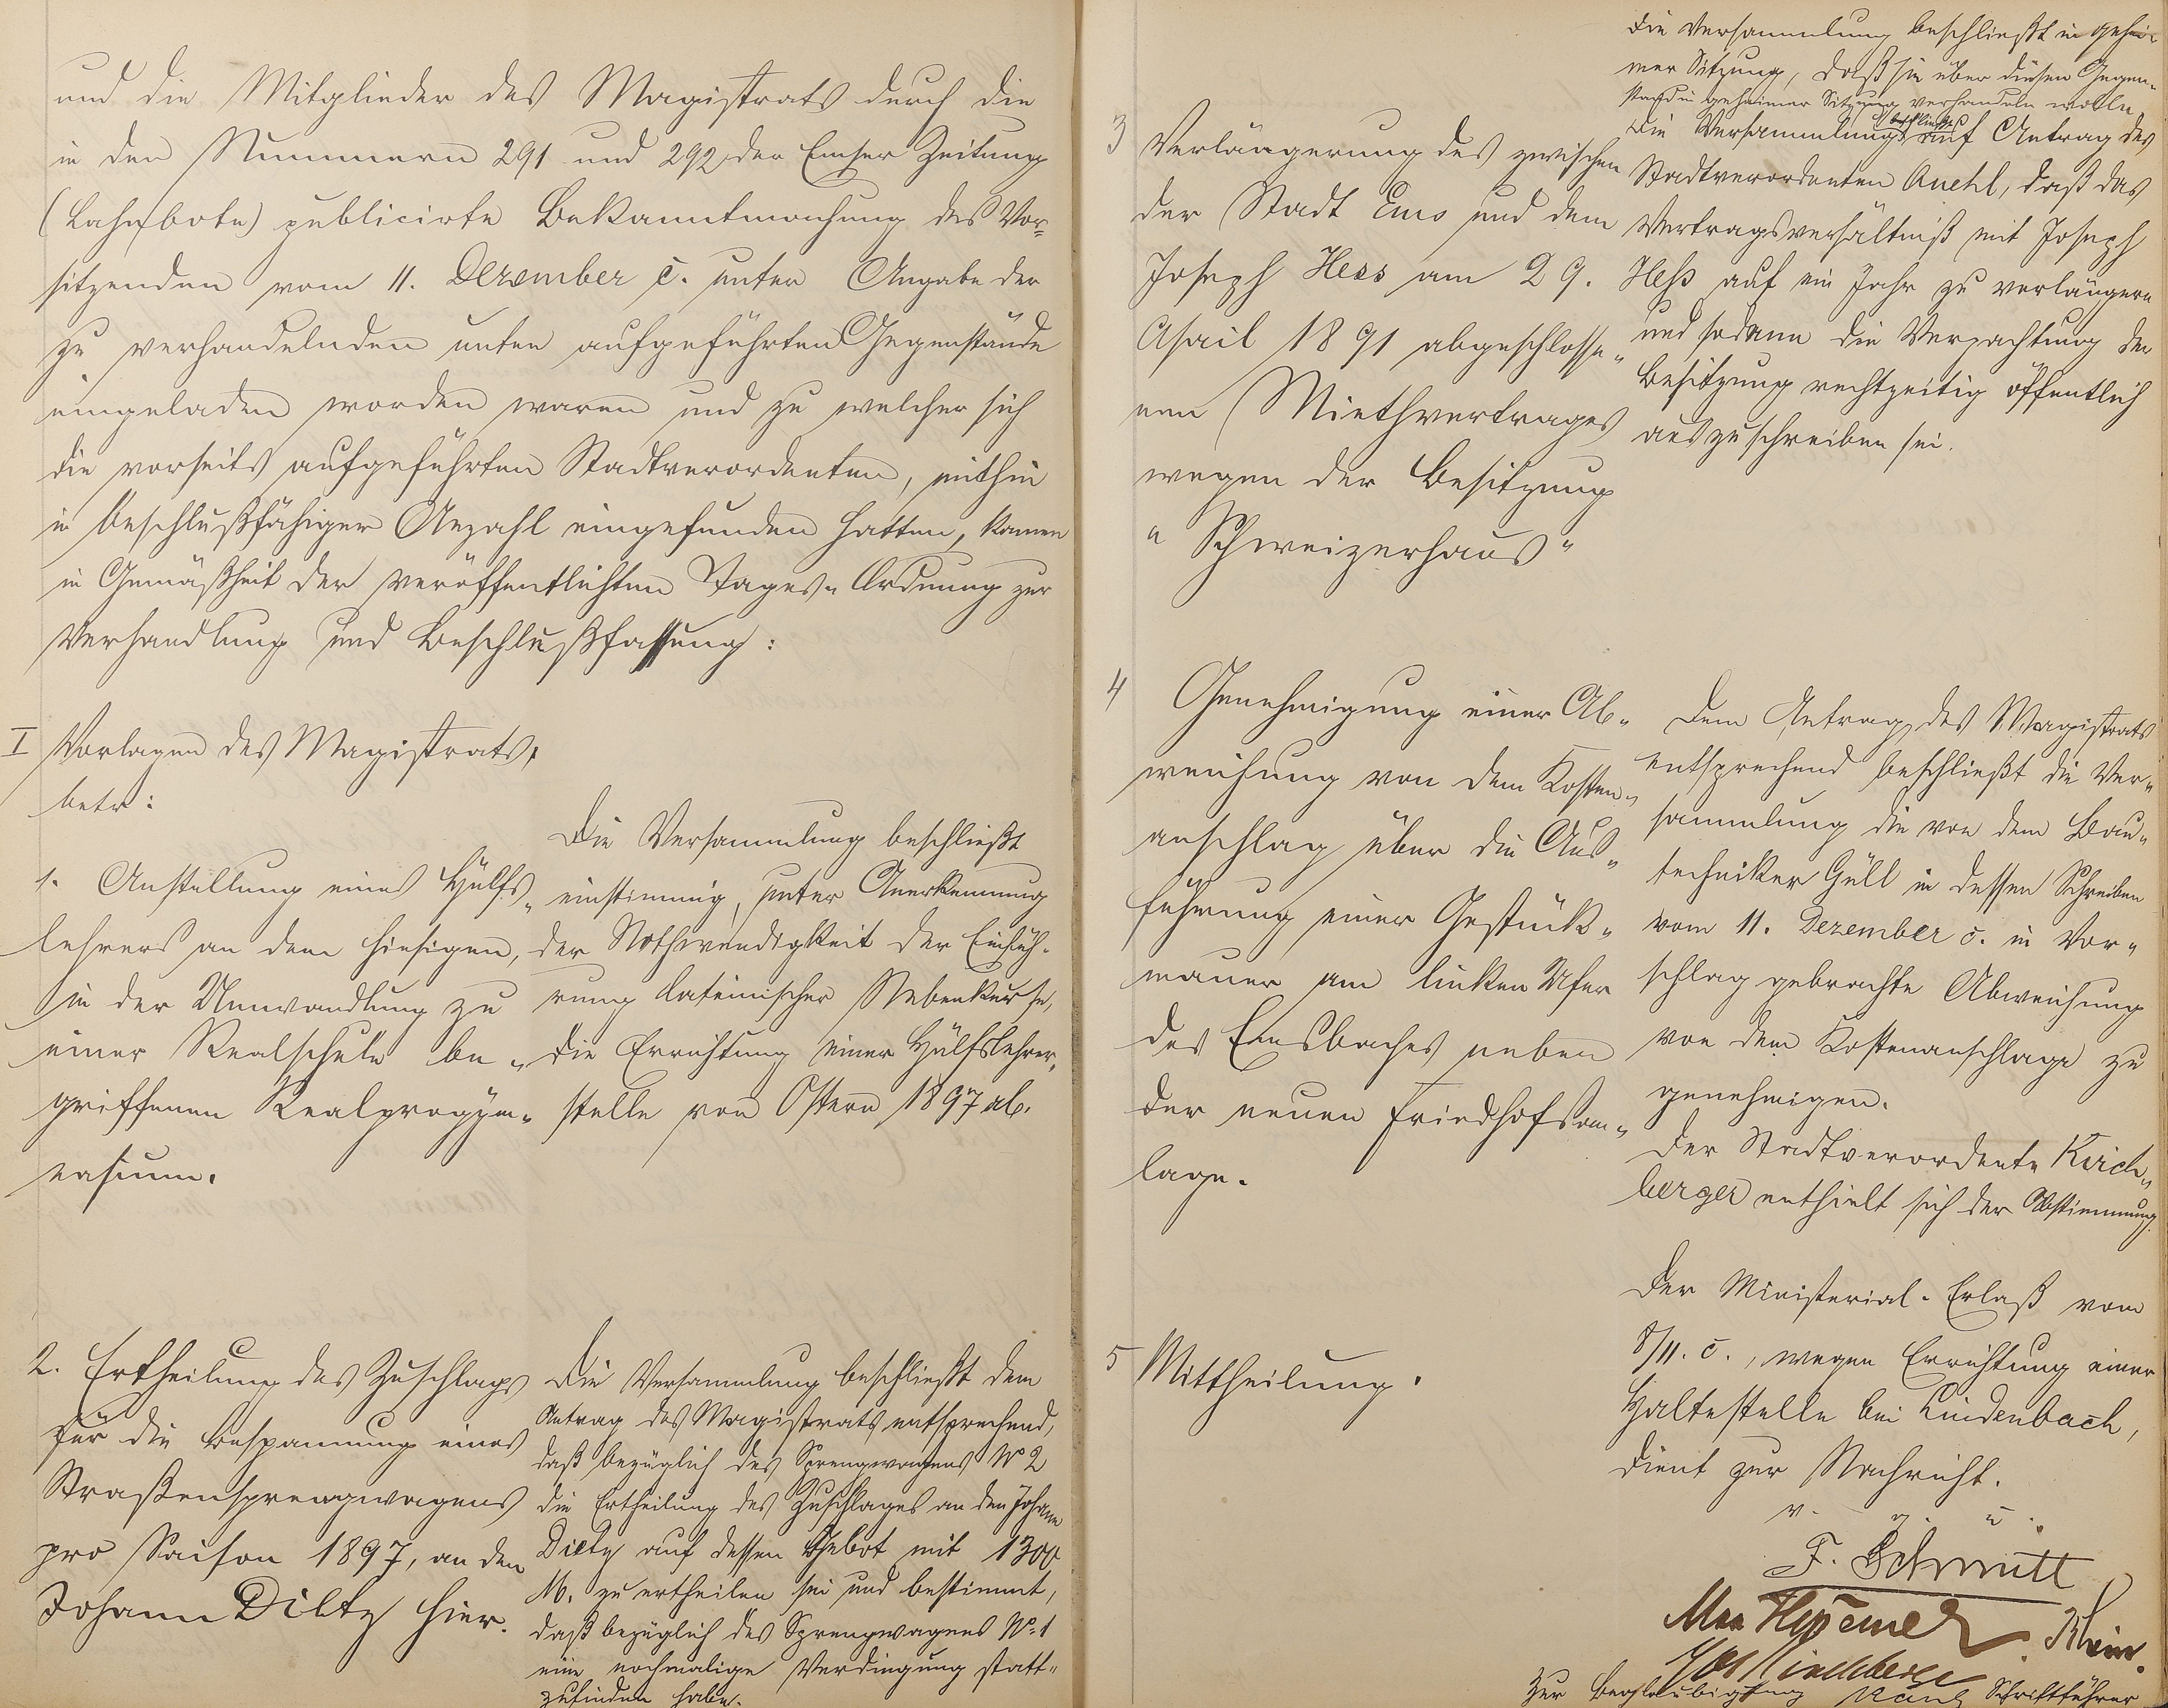 und die Mitglieder des Magistrats durch die
in den Nummern 291 und 292 der Emser Zeitung
(Lahnbote) publicirte Bekanntmachung des Vor-
sitzenden vom 11. Dezember c. unter Angabe der
zu verhandelnden unten aufgeführten Gegenstände
eingeladen worden waren und zu welcher sich
die vorseits aufgeführten Stadtverordneten, mithin
in beschlußfähiger Anzahl eingefunden hatten, kamen
in Gemäßheit der veröffentlichten Tages-Ordnung zur
Verhandlung und Beschlußfassung:
I Vorlagen des Magistrats,
betr:
1. Anstellung eines Hülfs-
lehrers an dem hiesigen,
in der Umwandlung zu
einer Realschule be-
griffenen Realprogym-
nasium.
Die Versammlung beschließt
einstimmig, unter Anerkennung
der Nothwendigkeit der Einfüh-
rung lateinischer Nebenkurse,
die Errichtung einer Hülfslehrer-
stelle von Ostern 1897 ab.
2. Ertheilung des Zuschlags
für die Bespannung eines
Straßensprengwagens
pro Saison 1897, an den
Johann Diltz hier.
Die Versammlung beschließt dem
Antrag des Magistrats entsprechend,
daß bezüglich des Sprengwagens No 2
die Ertheilung des Zuschlages an den Johann
Diltz auf dessen Gebot mit 1300
M. zu ertheilen sei und bestimmt,
daß bezüglich des Sprengwagens No 1
eine nochmalige Verdingung statt-
zufinden habe.
3 Verlängerung des zwischen
der Stadt Ems und dem
Joseph Hess am 29.
April 1891 abgeschlosse-
nen Miethvertrages
wegen der Besitzung
"Schweizerhaus"
Die Versammlung beschließt in gehei-
mer Sitzung, daß sie über diesen Gegen-
stand in geheimer Sitzung verhandeln wolle.
Die Versammlung beschließt auf Antrag des
Stadtverordneten Kuehl, daß das
Vertragsverhältniß mit Joseph
Heß auf ein Jahr zu verlängern
und sodann die Verpachtung der
Besitzung rechtzeitig öffentlich
auszuschreiben sei.
4 Genehmigung einer Ab-
weichung von dem Kosten-
anschlag über die Aus-
führung einer Gestück-
mauer am linken Ufer
des Emsbaches neben
der neuen Friedhofsan-
lage.
Dem Antrag des Magistrats
entsprechend beschließt die Ver-
sammlung die von dem Bau-
techniker Güll in dessen Schreiben
vom 11. Dezember c. in Vor-
schlag gebrachte Abweichung
von dem Kostenanschlage zu
genehmigen.
Der Stadtverordnete Kirch-
berger enthielt sich der Abstimmung.
5 Mittheilung.
Der Ministerial-Erlaß vom
8/11. c., wegen Errichtung einer
Haltestelle bei Lindenbach,
dient zur Nachricht.
v. g. u.
F. Schmitt
Rhein.
Kirchberger
Zur Beglaubigung Schriftführer